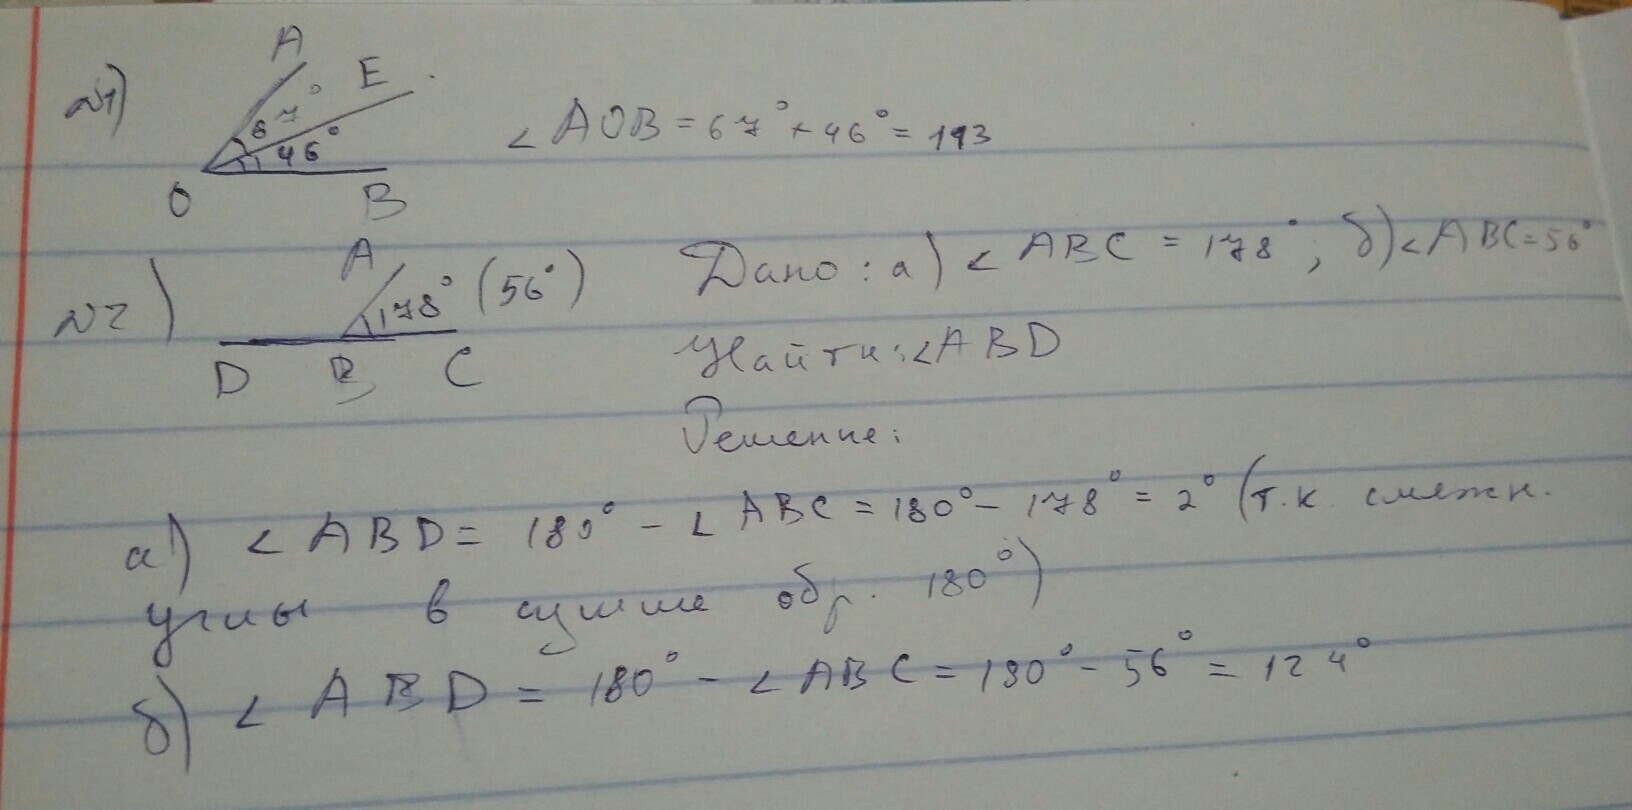 №1)
A
E
67°
46°
O
B
∠AOB = 67° + 46° = 113
№2)
A
178° (56°)
D B C
Дано: а) ∠ABC = 178°; б) ∠ABC = 56°
Найти: ∠ABD
Решение:
а) ∠ABD = 180° - ∠ABC = 180° - 178° = 2° (т.к. смежн.
углы в сумме обр. 180°)
б) ∠ABD = 180° - ∠ABC = 180° - 56° = 124°